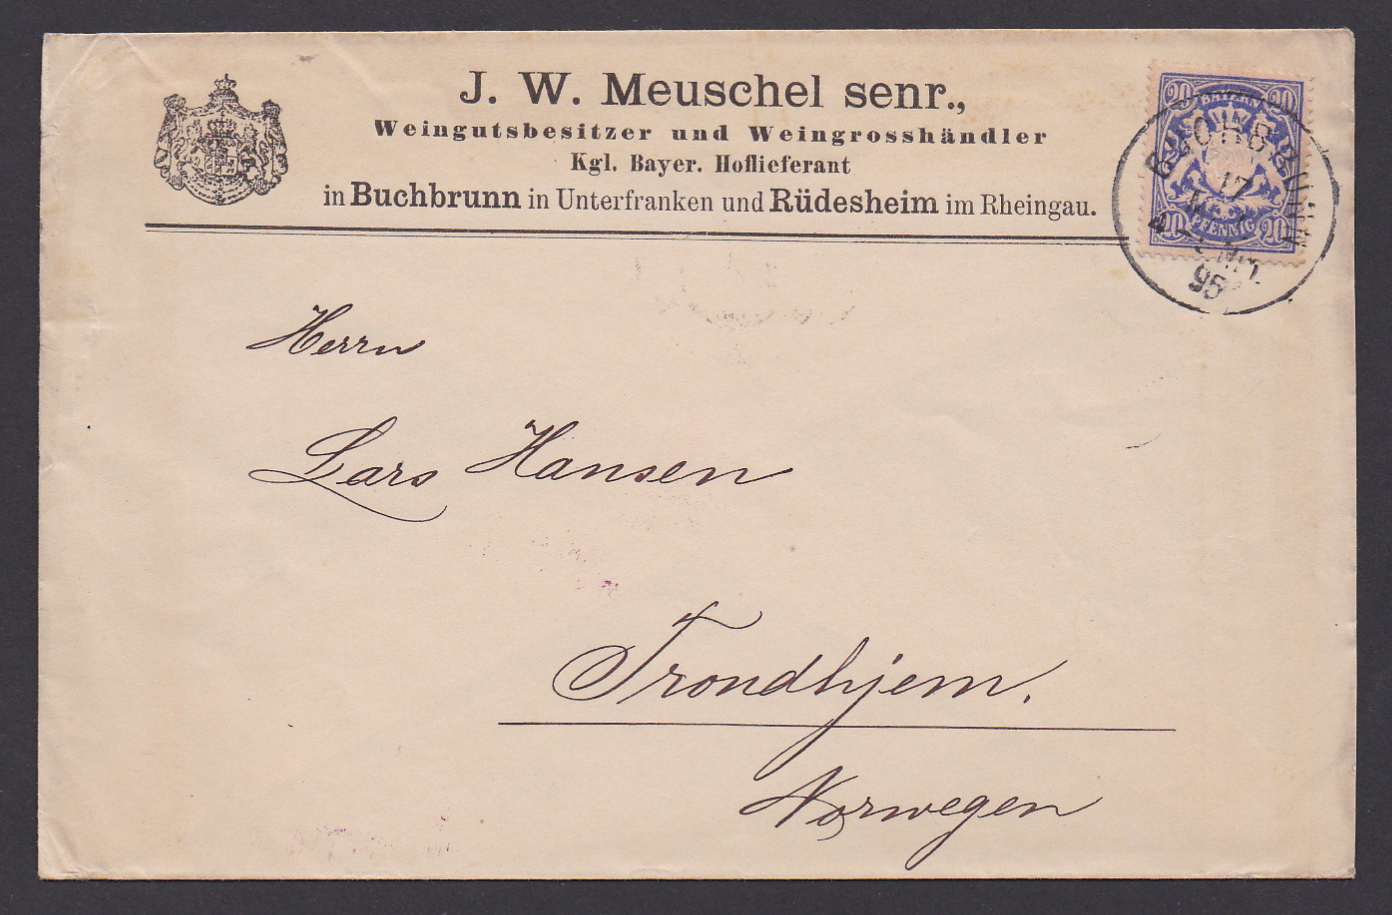 J. W. Meuschel senr.,
Weingutsbesitzer und Weingrosshändler
Kgl. Bayer. Hoflieferant
in Buchbrunn in Unterfranken und Rüdesheim im Rheingau.
20 BAYERN 20
20 PFENNIG 20
17
95
Herrn
Lars Hansen
Trondhjem.
Norwegen